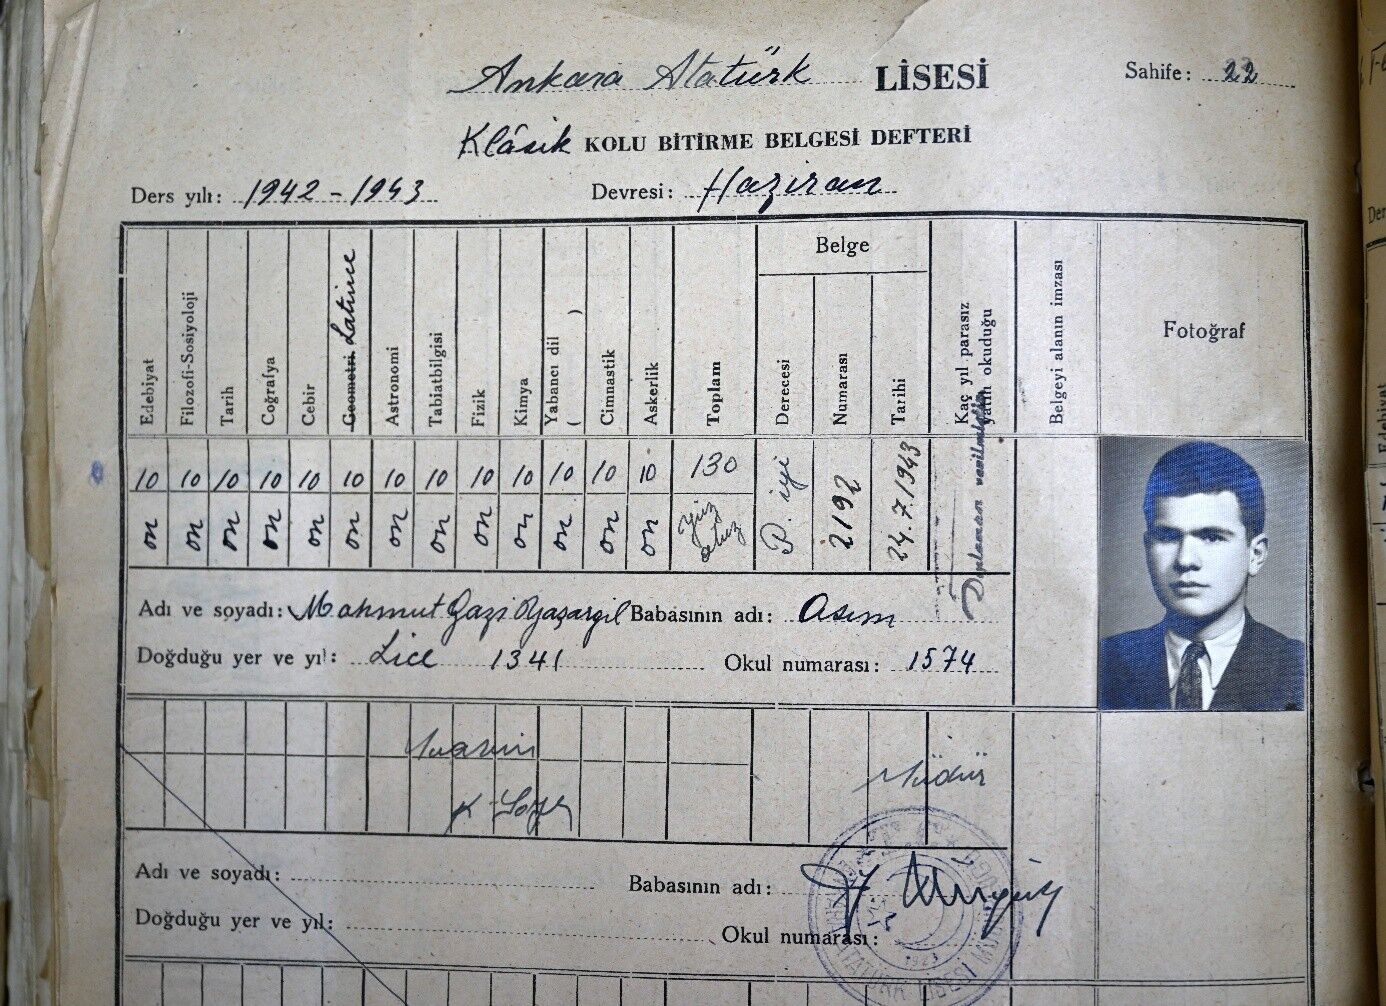 Ankara Atatürk LİSESİ Sahife: 22
Klâsik KOLU BİTİRME BELGESİ DEFTERİ
Ders yılı: 1942-1943 Devresi: Haziran
Edebiyat
Filozofi-Sosiyoloji
Tarih
Coğrafya
Cebir
Geometri Latince
Astronomi
Tabiatbilgisi
Fizik
Kimya
Yabancı dil ( )
Cimnastik
Askerlik
Toplam
Belge
Derecesi
Numarası
Tarihi
Kaç yıl parasız yatılı okuduğu
Belgeyi alanın imzası
Fotoğraf
10 10 10 10 10 10 10 10 10 10 10 10 10 130
on on on on on on on on on on on on on yüz otuz
P. iyi
2192
24.7.1943
Adı ve soyadı: Mahmut Gazi Yaşargil Babasının adı: Asım
Doğduğu yer ve yıl: Lice 1341 Okul numarası: 1574
Müdür
Adı ve soyadı: Babasının adı:
Doğduğu yer ve yıl: Okul numarası:
1923
ATATÜRK LİSESİ